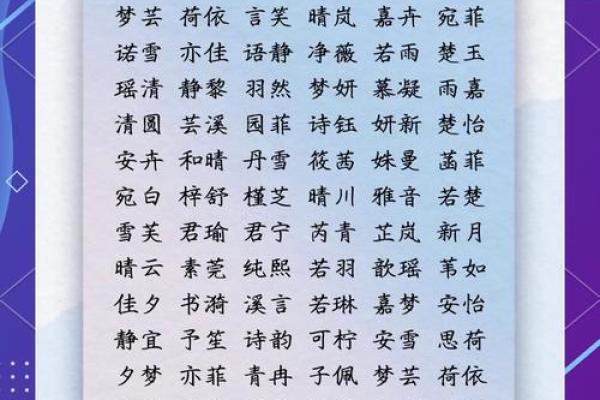 梦芸 荷依 言笑 晴岚 嘉卉 宛菲
诺雪 亦佳 语静 净薇 若雨 楚玉
瑶清 静黎 羽然 梦妍 慕凝 雨嘉
清圆 芸溪 园菲 诗钰 妍新 楚怡
安卉 和晴 丹雪 筱茜 姝曼 菡菲
宛白 梓舒 槿芝 晴川 雅音 若楚
雪芙 君瑜 君宁 芮青 芷岚 新月
晴云 素莞 纯熙 若羽 歆瑶 苇如
佳夕 书漪 溪言 若琳 嘉梦 安怡
静宜 予笙 诗韵 可柠 安雪 思荷
夕梦 亦菲 青冉 子佩 梦芸 荷依